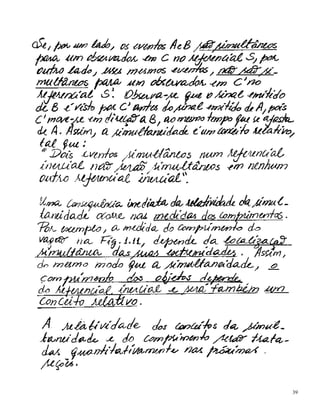 Se, por um lado, os eventos A e B são simultâneos
para um observador em C no referencial S, por
outro lado, esses mesmos eventos, não são si-
multâneos para um observador em C' no
referencial S'. Observa-se que o sinal emitido
de B é visto por C' antes do sinal emitido de A, pois
C' move-se em direção a B, ao mesmo tempo que se afasta
de A. Assim, a simultaneidade é um conceito relativo,
tal que:
"Dois eventos simultâneos num referencial
inercial não serão simultâneos em nenhum
outro referencial inercial".
Uma consequência imediata da relatividade da simul-
taneidade ocorre nas medidas dos comprimentos.
Por exemplo, a medida do comprimento do
vagão na Fig. 1.11, depende da localização
simultânea das suas extremidades. Assim,
do mesmo modo que a simultaneidade, o
comprimento dos objetos depende
do referencial inercial e será também um
conceito relativo.
A relatividade dos conceitos da simul-
taneidade e do comprimento serão trata-
das quantitativamente nas próximas
seções.
39